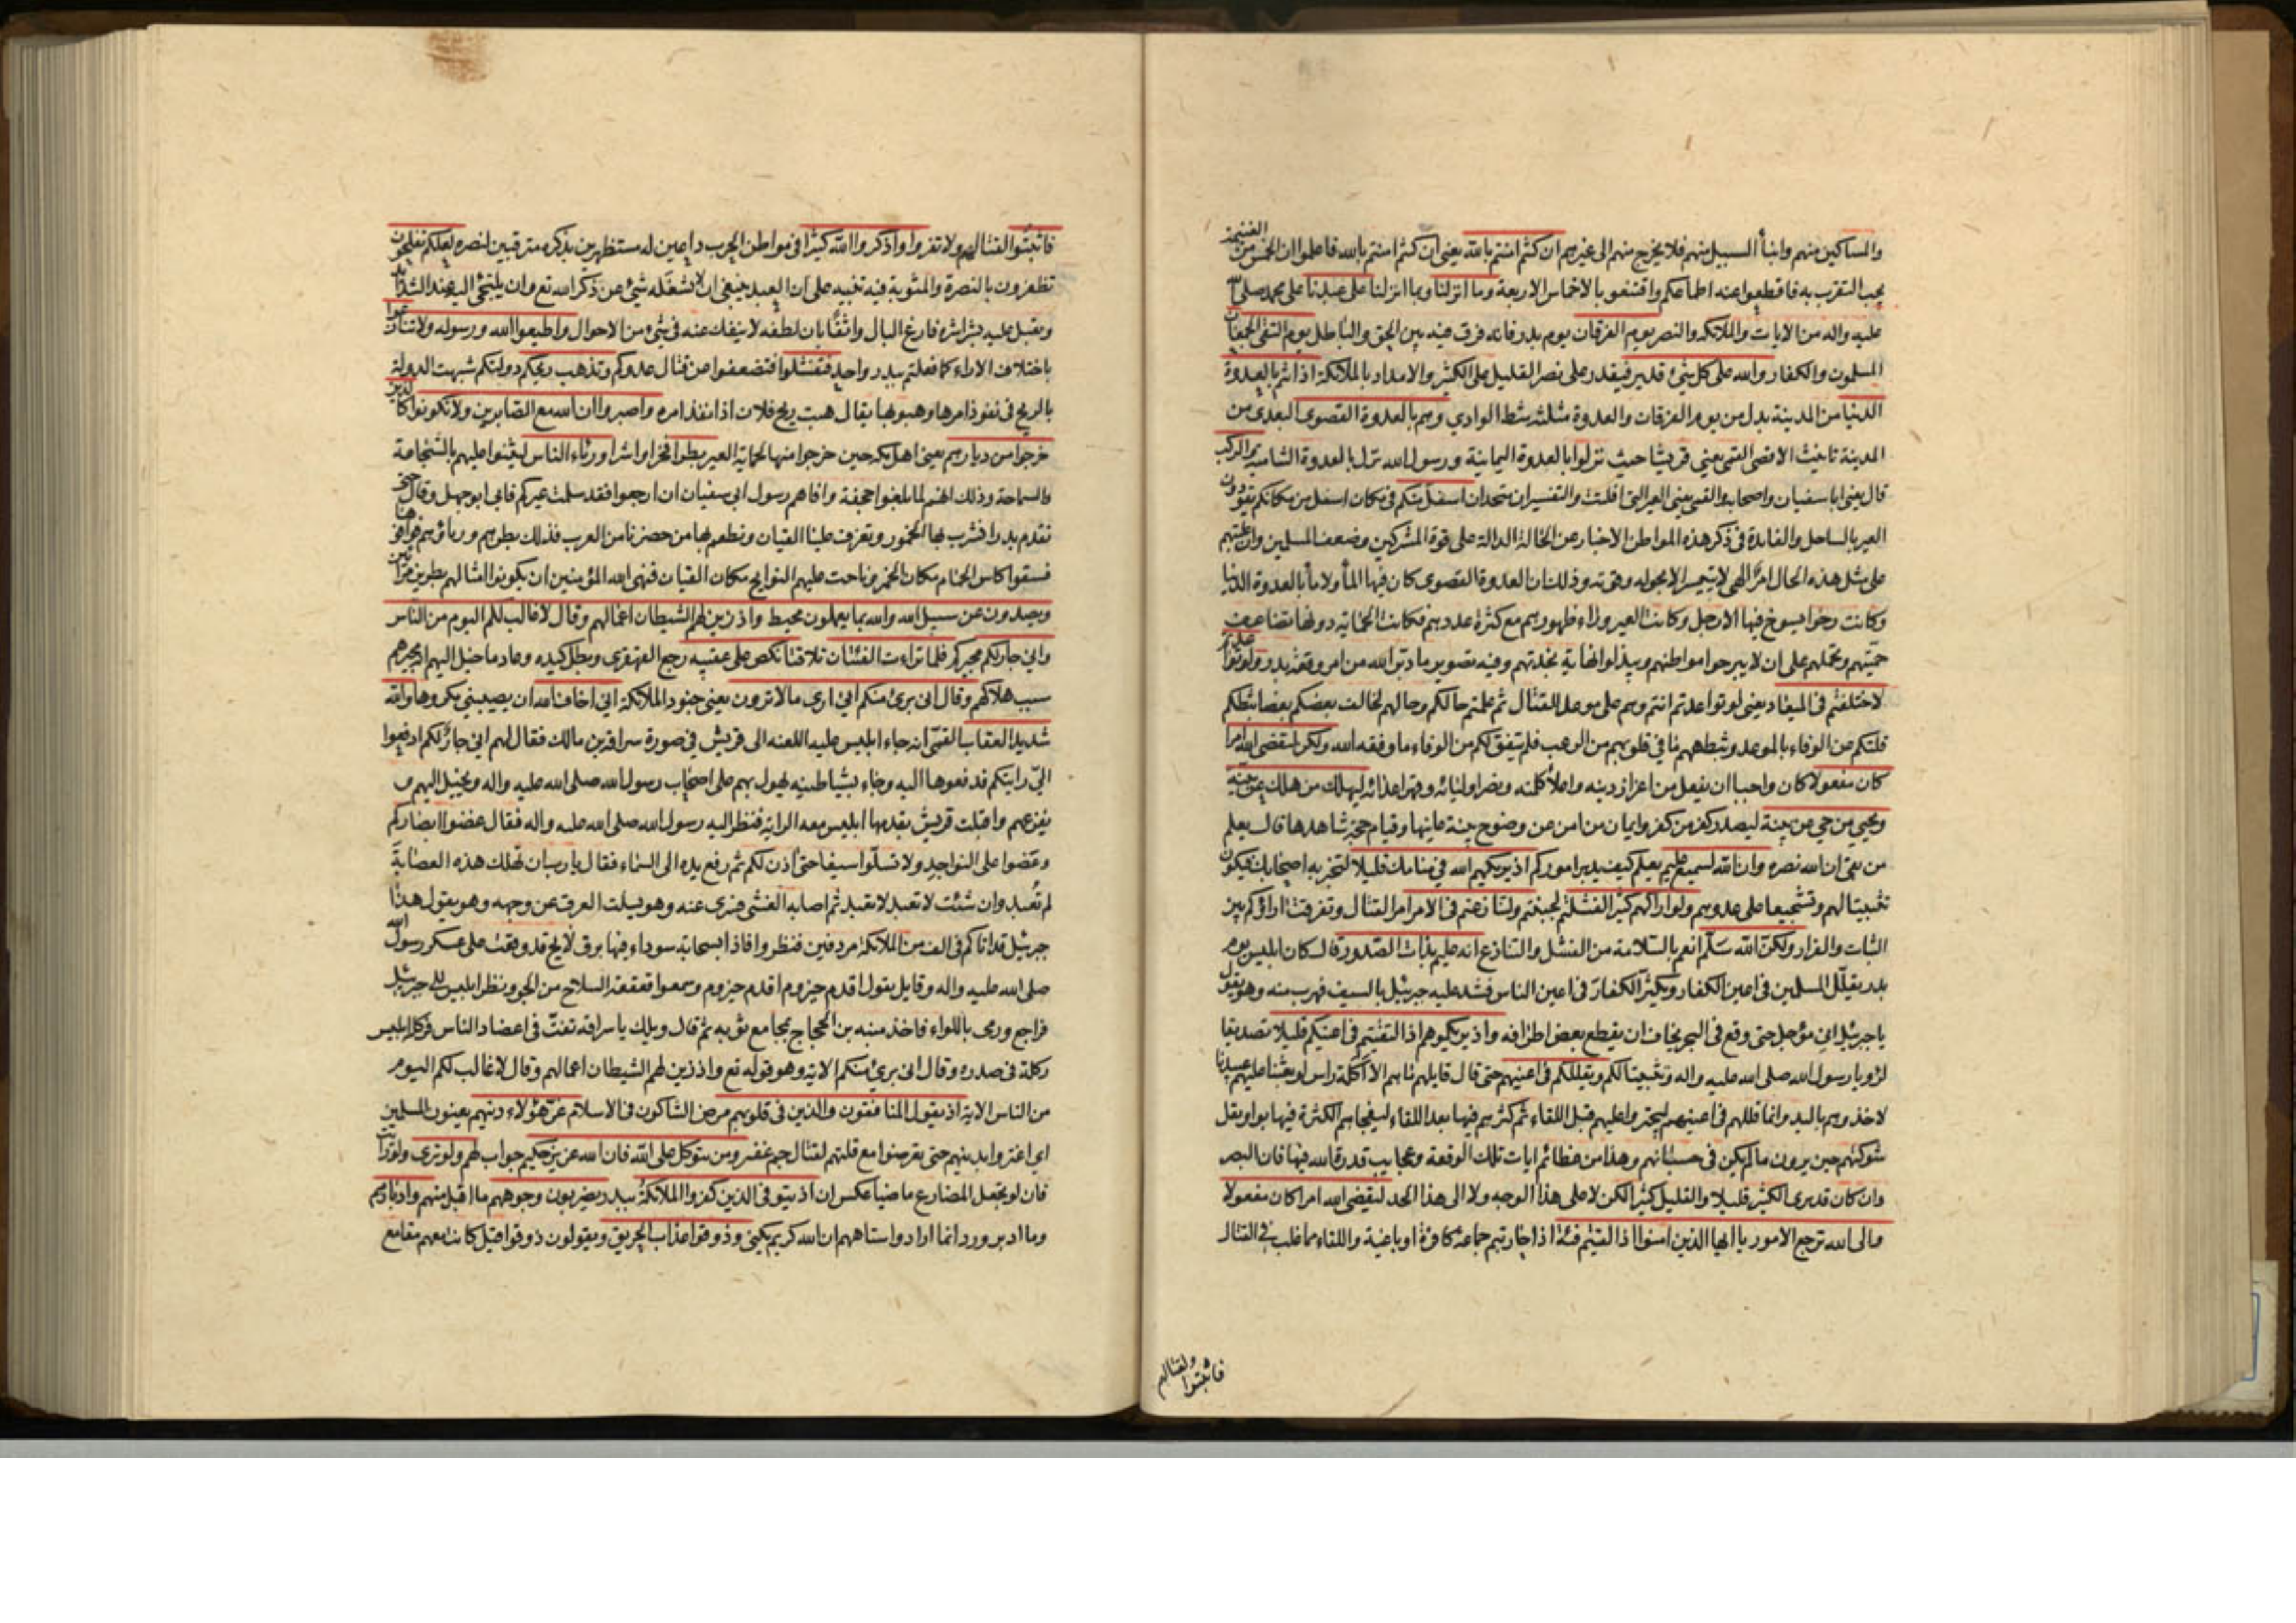 والمساكين منهم وابناء السبيل منهم فلا يخرج منهم الى غيرهم ان كنتم امنتم بالله يعنى ان كنتم امنتم بالله فاعلموا ان الخمس من الغنيمة
يجب التقرب به فاقطعوا عنه اطماعكم واقتنعوا بالاخماس الاربعة وما انزلنا وبما انزلنا على عبدنا على محمد صلى الله
عليه واله من الايات والملائكة والنصر يوم الفرقان يوم بدر فانه فرق فيه بين الحق والباطل يوم التقى الجمعان
المسلمون والكفار والله على كل شئ قدير فيقدر على نصر القليل على الكثير والامداد بالملائكة اذ انتم بالعدوة
الدنيا من المدينة بدل من يوم الفرقان والعدوة مثلثه شط الوادي وهم بالعدوة القصوى البعدى من
المدينة تانيث الاقصى القمى يعني قريشا حيث نزلوا بالعدوة اليمانية ورسول الله نزل بالعدوة الشامية والركب
قال يعنى ابا سفيان واصحابه والقمى يعنى العير التي افلتت والتفسيران متحدان اسفل منكم في مكان اسفل من مكانكم يقودون
العير بالساحل والفايدة في ذكر هذه المواطن الاخبار عن الحالة الدالة على قوة المشركين وضعف المسلمين وان غلبتهم
على مثل هذه الحال امر الهي لا يتيسر الا بحوله وقوته وذلك ان العدوة القصوى كان فيها الماء ولا ماء بالعدوة الدنيا
وكانت رخوا يسوخ فيها الارجل وكانت العير وراء ظهورهم مع كثرة عددهم فكانت الحماية دونها تضاعف
حميتهم وتحملهم على ان لا يبرحوا مواطنهم ويبذلوا نهاية نجدتهم وفيه تصوير ما دبر الله من امر وقعة بدر ولو تواعدتم
لاختلفتم فى الميعاد يعنى لو تواعدتم انتم وهم على موعد للقتال ثم علمتم حالكم وحالهم لخالف بعضكم بعضا ثبطكم
قلتكم عن الوفاء بالموعد وثبطهم ما في قلوبهم من الرعب فلم يتفق لكم من الوفاء ما وفقه الله ولكن ليقضى الله امرا
كان مفعولا كان واجبا ان يفعل من اعزاز دينه واعلاء كلمته ونصر اوليائه وقهر اعدائه ليهلك من هلك عن بينة
ويحيي من حي عن بينة ليصدر كفر من كفر وايمان من امن عن وضوح بينة عاينها وقيام حجة شاهدها قال يعلم
من بقى ان الله نصره وان الله لسميع عليم يعلم كيف يدبر اموركم اذ يريكهم الله في منامك قليلا لتخبر به اصحابك فيكون
تثبيتا لهم وتشجيعا على عدوهم ولو اراكهم كثيرا لفشلتم لجبنتم ولتنازعتم في الامر امر القتال وتفرقت اراؤكم بين
الثبات والفرار ولكن الله سلم انعم بالسلامة من الفشل والتنازع انه عليم بذات الصدور قال كان ابليس يوم
بدر يقلل المسلمين في اعين الكفار ويكثر الكفار في اعين الناس فشد عليه جبرئيل بالسيف فهرب منه وهو يقول
يا جبرئيل اني مؤجل حتى وقع فى البحر يخاف ان يقطع بعض اطرافه واذ يريكموهم اذ التقيتم في اعينكم قليلا تصديقا
لرؤيا رسول الله صلى الله عليه واله وتثبيتا لكم ويقللكم في اعينهم حتى قال قايلهم ما هم الا اكلة راس لو بعثنا عليهم عبيدنا
لاخذوهم باليد وانما قللهم فى اعينهم ليجترءوا عليهم قبل اللقاء ثم كثرهم فيها بعد اللقاء ليفجاهم الكثرة فيهابوا ويقل
شوكتهم حين يرون ما لم يكن في حسبانهم وهذا من عظائم ايات تلك الوقعة وعجايب قدرة الله فيها فان البصر
وان كان قد يرى الكثير قليلا والقليل كثيرا لكن لا على هذا الوجه ولا الى هذا الحد ليقضي الله امرا كان مفعولا
والى الله ترجع الامور يا ايها الذين امنوا اذا لقيتم فئة اذا حاربتم جماعة كافرة او باغية واللقاء مما غلب في القتال
فاثبتوا لقتالهم
فاثبتوا لقتالهم ولا تفروا واذكروا الله كثيرا في مواطن الحرب داعين له مستظهرين بذكره مترقبين لنصره لعلكم تفلحون
تظفرون بالنصرة والمثوبة فيه تنبيه على ان العبد ينبغى ان لا يشغله شئ عن ذكر الله تع وان يلتجئ اليه عند الشدائد
ويقبل عليه بشراشره فارغ البال واثقا بان لطفه لا ينفك عنه في شئ من الاحوال واطيعوا الله ورسوله ولا تنازعوا
باختلاف الاراء كما فعلتم ببدر واحد فتفشلوا فتضعفوا عن قتال عدوكم وتذهب ريحكم دولتكم شبهت الدولة
بالريح في نفوذ امرها وهبوبها يقال هبت ريح فلان اذا نفذ امره واصبروا ان الله مع الصابرين ولا تكونوا كالذين
خرجوا من ديارهم يعنى اهل مكة حين خرجوا منها لحماية العير بطرا فخرا واشرا ورئاء الناس ليثنوا عليهم بالشجاعة
والسماحة وذلك انهم لما بلغوا جحفة وافاهم رسول ابي سفيان ان ارجعوا فقد سلمت عيركم فابى ابو جهل وقال حتى
نقدم بدرا فنشرب بها الخمور وتعزف علينا القيان ونطعم بها من حضرنا من العرب فذلك بطرهم ورياؤهم فوافوها
فسقوا كاس الحمام مكان الخمر وناحت عليهم النوايح مكان القيان فنهى الله المؤمنين ان يكونوا امثالهم بطرين مرائين
ويصدون عن سبيل الله والله بما يعملون محيط واذ زين لهم الشيطان اعمالهم وقال لا غالب لكم اليوم من الناس
واني جار لكم مجيركم فلما تراءت الفئتان تلاقتا نكص على عقبيه رجع القهقرى وبطل كيده وعاد ما خيل اليهم انه مجيرهم
سبب هلاكهم وقال انى برئ منكم اني ارى ما لا ترون يعنى جنود الملائكة اني اخاف الله ان يصيبني مكروها والله
شديد العقاب القمى انه جاء ابليس عليه اللعنه الى قريش في صورة سراقة بن مالك فقال لهم اني جار لكم ادفعوا
الي رايتكم فدفعوها اليه وجاء بشياطينه يهول بهم على اصحاب رسول الله صلى الله عليه واله ويخيل اليهم و
يفزعهم واقبلت قريش يقدمها ابليس معه الراية فنظر اليه رسول الله صلى الله عليه واله فقال غضوا ابصاركم
وعضوا على النواجد ولا تسلوا سيفا حتى اذن لكم ثم رفع يده الى السماء فقال يا رب ان تهلك هذه العصابة
لم تعبد وان شئت لا تعبد لا تعبد ثم اصابه الغشى فسرى عنه وهو يسلت العرق عن وجهه وهو يقول هذا
جبرئيل قد اتاكم في الف من الملائكة مردفين فنظروا فاذا بسحابة سوداء فيها برق لايح قد وقعت على عسكر رسول الله
صلى الله عليه واله وقايل يقول اقدم حيزوم اقدم حيزوم وسمعوا قعقعة السلاح من الجو ونظر ابليس الى جبرئيل
فراجع ورمى باللواء فاخذ منبه بن الحجاج بمجامع ثوبه ثم قال ويلك يا سراقه تفت في اعضاد الناس فركله ابليس
ركلة فى صدره وقال انى برئ منكم الاية وهو قوله تع واذ زين لهم الشيطان اعمالهم وقال لا غالب لكم اليوم
من الناس الاية اذ يقول المنافقون والذين في قلوبهم مرض الشاكون في الاسلام غر هؤلاء دينهم يعنون المسلمين
اي اغتروا بدينهم حتى تعرضوا مع قلتهم لقتال جم غفير ومن يتوكل على الله فان الله عزيز حكيم جواب لهم ولو ترى ولو رايت
فان لو يجعل المضارع ماضيا عكس ان اذ يتوفى الذين كفروا الملائكة ببدر يضربون وجوههم ما اقبل منهم وادبارهم
وما ادبر وورد انما ارادوا استاههم ان الله كريم يكنى وذوقوا عذاب الحريق ويقولون ذوقوا قيل كانت معهم مقامع